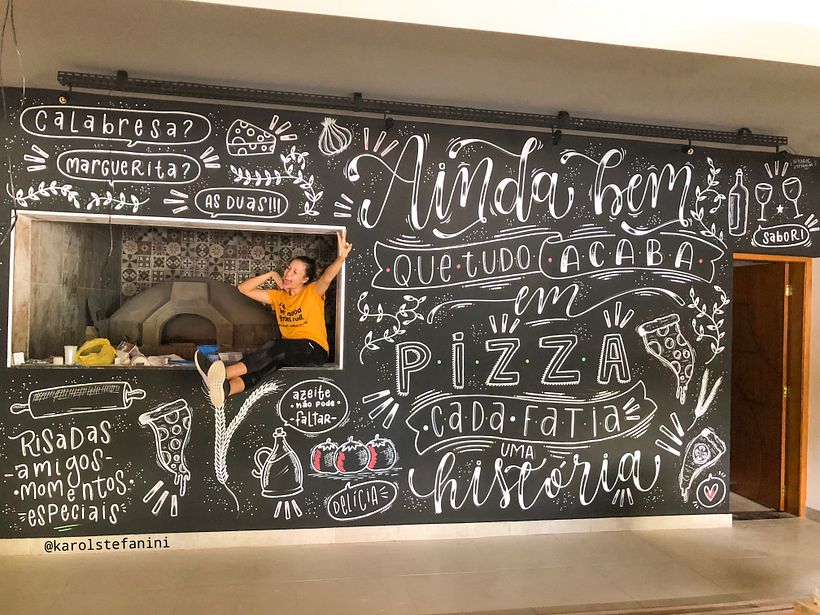 Calabresa?
Marguerita?
As duas!!!
Ainda bem
que tudo acaba
em
PIZZA
cada fatia
uma
história
Sabor!
azeite
não pode
faltar
Delícia
Risadas
amigos
momentos
especiais
@karolstefanini